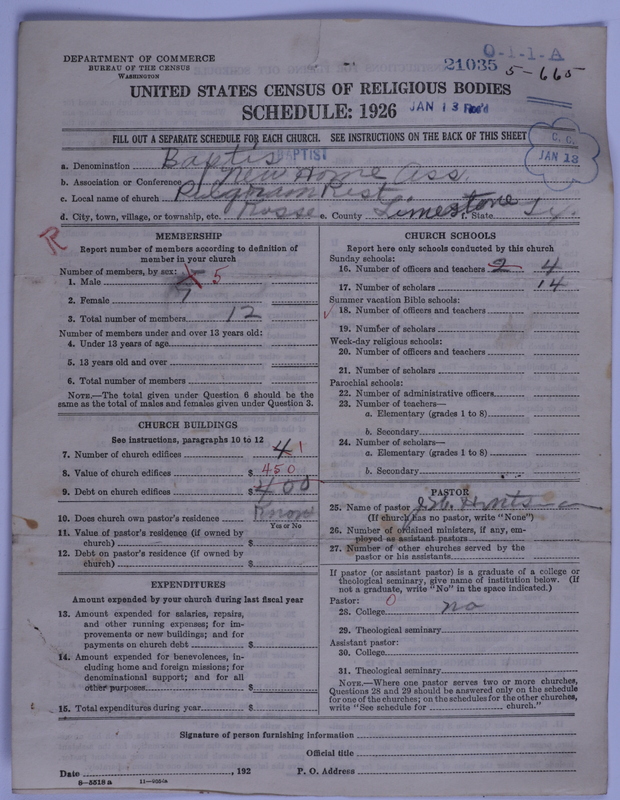 DEPARTMENT OF COMMERCE
BUREAU OF THE CENSUS
WASHINGTON
Q-1-1-A
21035 5-665
UNITED STATES CENSUS OF RELIGIOUS BODIES
SCHEDULE: 1926 JAN 13 Rec'd
FILL OUT A SEPARATE SCHEDULE FOR EACH CHURCH. SEE INSTRUCTIONS ON THE BACK OF THIS SHEET
C. C.
JAN 13
a. Denomination Baptis BAPTIST
b. Association or Conference New Home Ass.
c. Local name of church Pilgram Rest
d. City, town, village, or township, etc. Kosse e. County Limestone f. State Tx.
R
MEMBERSHIP
Report number of members according to definition of
member in your church
Number of members, by sex:
1. Male 5
2. Female 7
3. Total number of members 12
Number of members under and over 13 years old:
4. Under 13 years of age
5. 13 years old and over
6. Total number of members
NOTE.—The total given under Question 6 should be the
same as the total of males and females given under Question 3.
CHURCH BUILDINGS
See instructions, paragraphs 10 to 12
7. Number of church edifices 4 1
8. Value of church edifices $ 450
9. Debt on church edifices $ 400
10. Does church own pastor's residence
Yes or No
11. Value of pastor's residence (if owned by
church) $
12. Debt on pastor's residence (if owned by
church) $
EXPENDITURES
Amount expended by your church during last fiscal year
13. Amount expended for salaries, repairs,
and other running expenses; for im-
provements or new buildings; and for
payments on church debt $
14. Amount expended for benevolences, in-
cluding home and foreign missions; for
denominational support; and for all
other purposes $
15. Total expenditures during year $
CHURCH SCHOOLS
Report here only schools conducted by this church
Sunday schools:
16. Number of officers and teachers 2 4
17. Number of scholars 14
Summer vacation Bible schools:
18. Number of officers and teachers
19. Number of scholars
Week-day religious schools:
20. Number of officers and teachers
21. Number of scholars
Parochial schools:
22. Number of administrative officers
23. Number of teachers—
a. Elementary (grades 1 to 8)
b. Secondary
24. Number of scholars—
a. Elementary (grades 1 to 8)
b. Secondary
PASTOR
25. Name of pastor
(If church has no pastor, write "None")
26. Number of ordained ministers, if any, em-
ployed as assistant pastors
27. Number of other churches served by the
pastor or his assistants
If pastor (or assistant pastor) is a graduate of a college or
theological seminary, give name of institution below. (If
not a graduate, write "No" in the space indicated.)
Pastor: 0
28. College no
29. Theological seminary
Assistant pastor:
30. College
31. Theological seminary
NOTE.—Where one pastor serves two or more churches,
Questions 28 and 29 should be answered only on the schedule
for one of the churches; on the schedules for the other churches,
write "See schedule for church."
Signature of person furnishing information
Official title
Date , 192 P. O. Address
8-5518 a